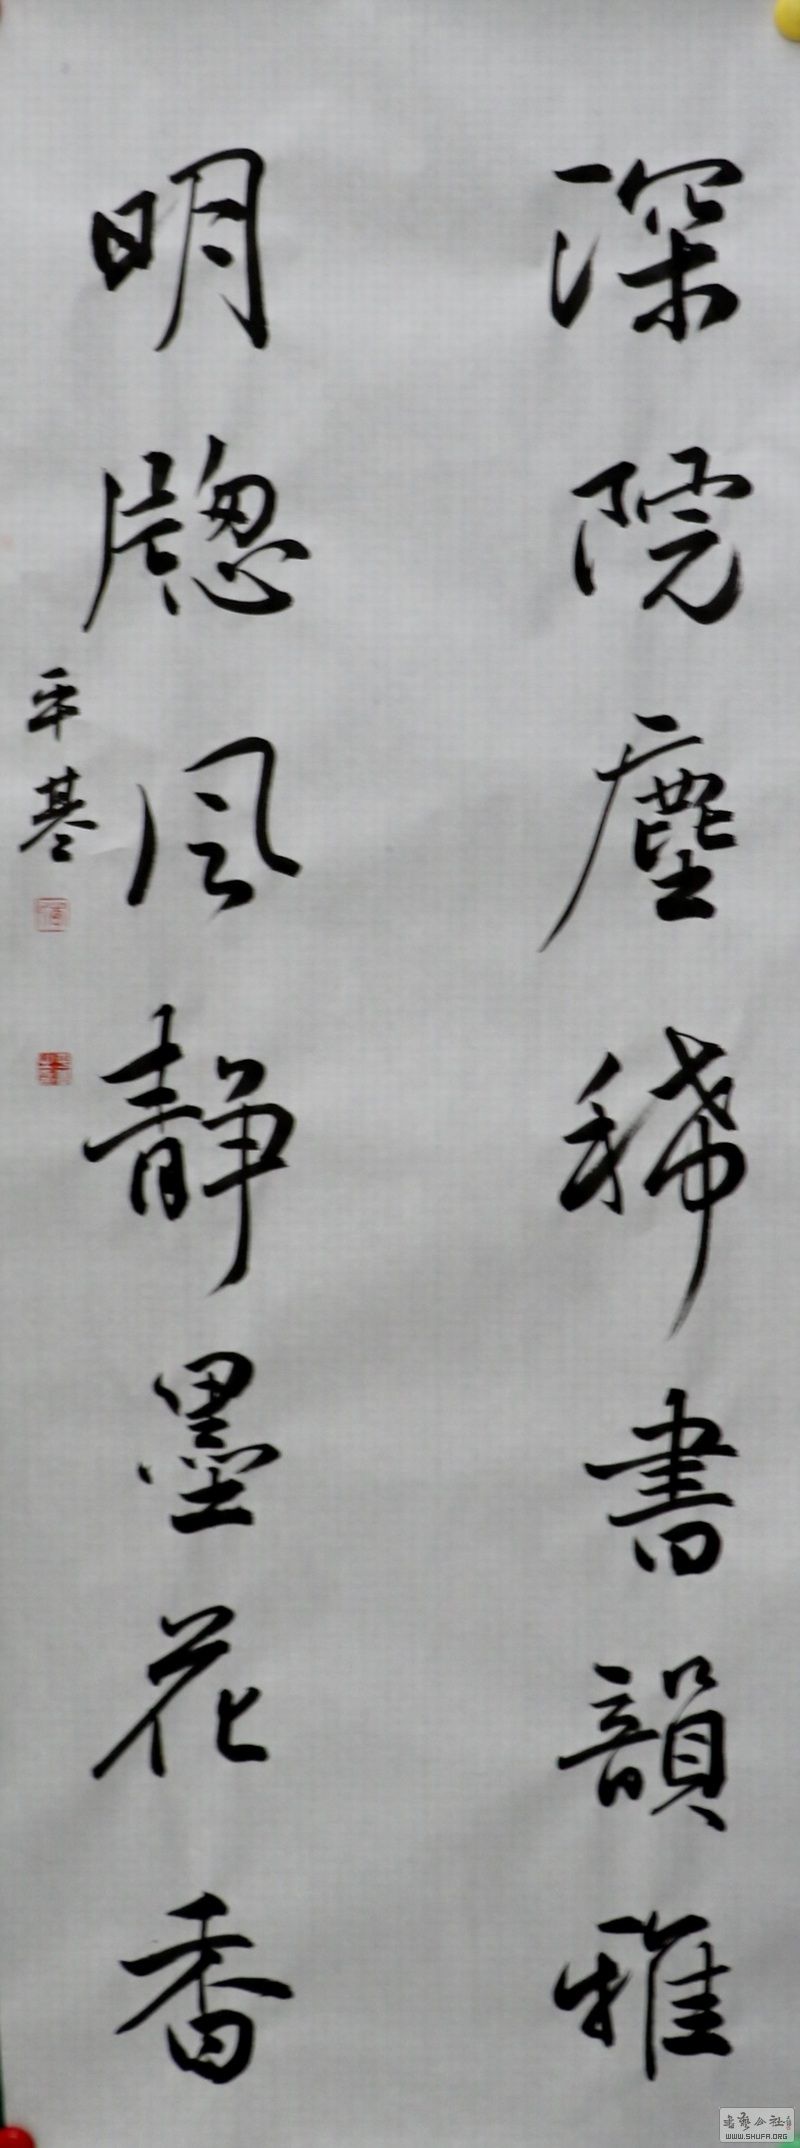 深院塵稀書韻雅
明牕風静墨花香
平基
書藝公社
WWW.SHUFA.ORG